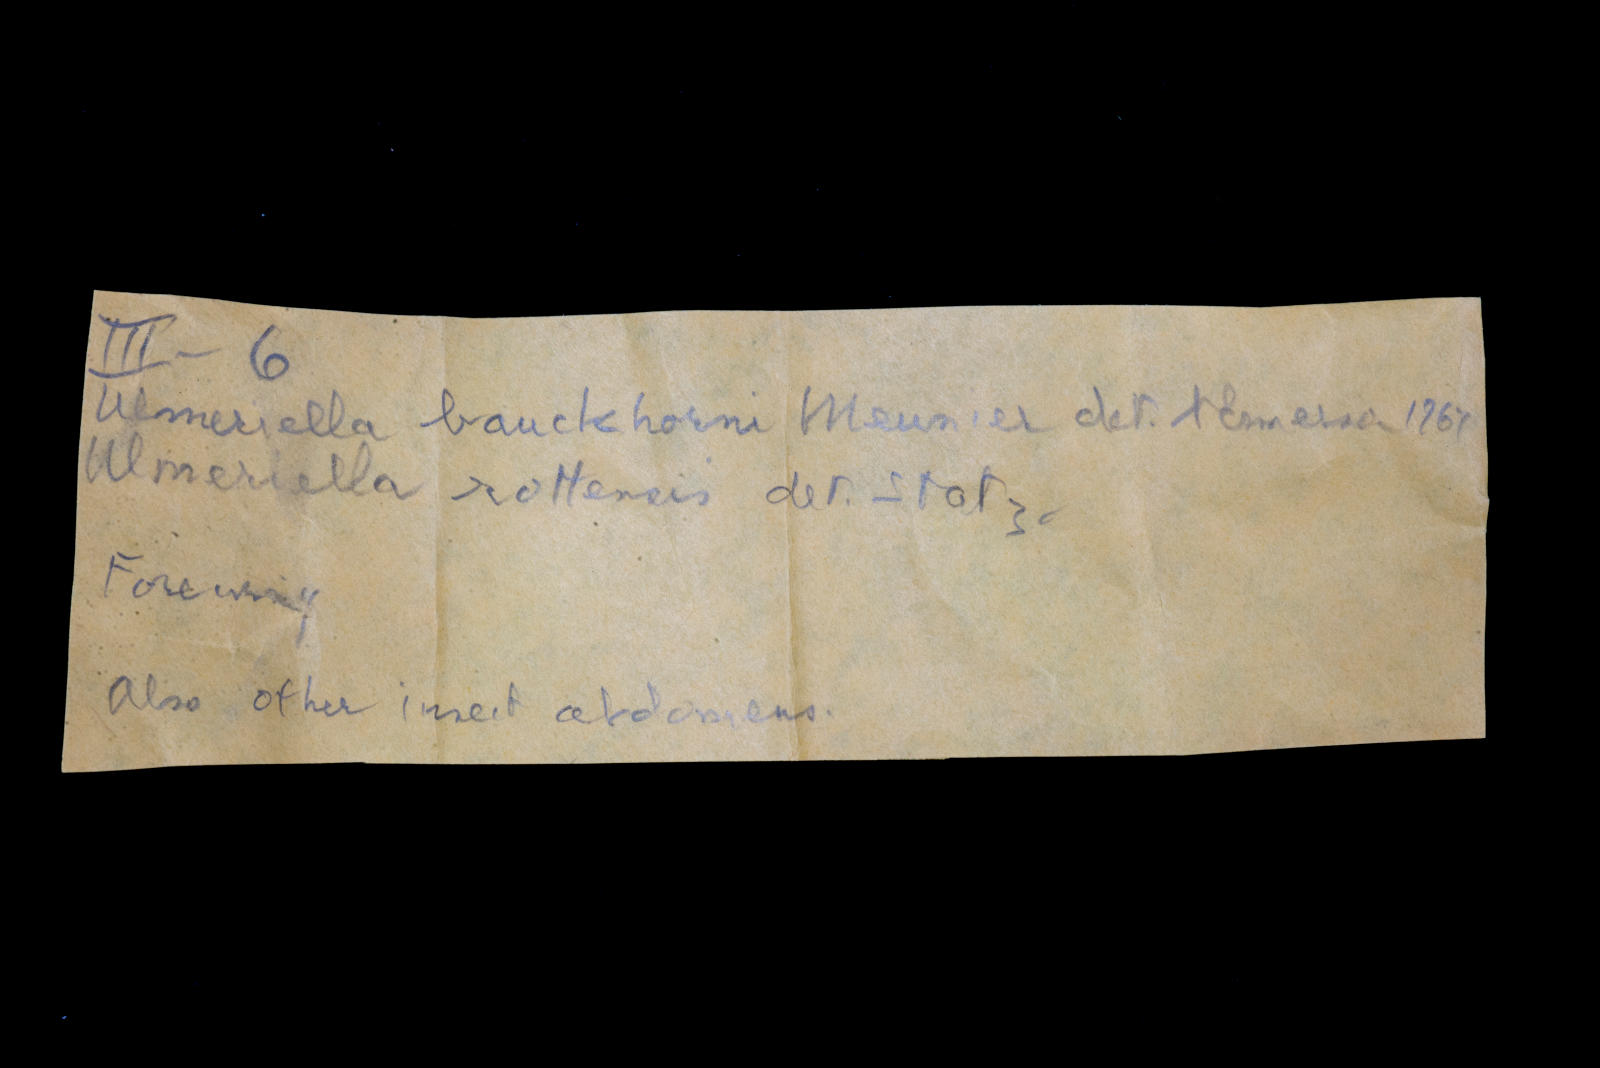 III - 6
Ulmeriella bauckhorni Meunier det. AEmerson
Ulmeriella rottensis det. Statz.
Forewing
Also other insect abdomens.